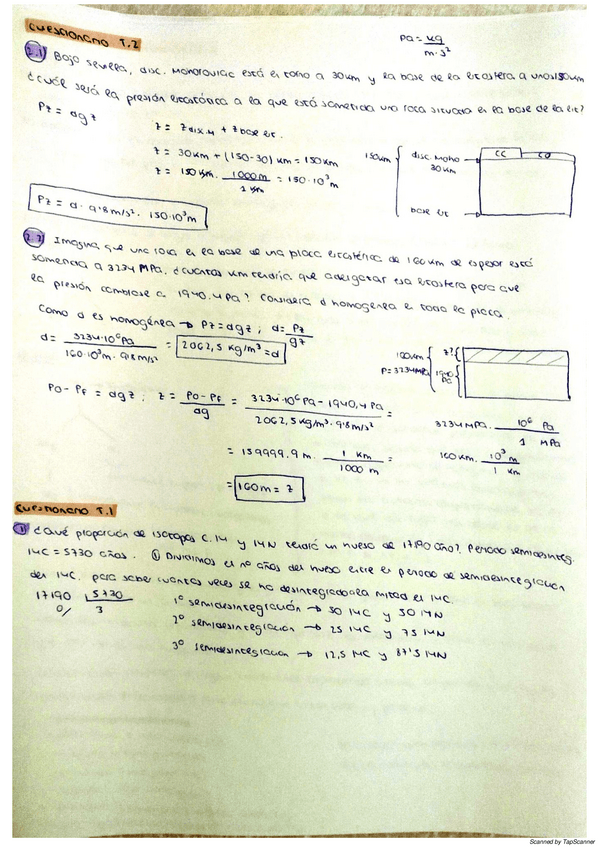 CUESTIONARIO T.2
Pa = kg / m·s²
2.1) Bajo Sevilla, disc. Mohorovicic está en torno a 30km y la base de la litosfera a unos 150km
¿Cuál será la presión litostática a la que está sometida una roca situada en la base de la lit?
Pz = dgz
z = z disc.M + z base lit.
z = 30km + (150-30) km = 150km
z = 150 km · 1000m / 1 km = 150·10³m
Pz = d · 9'8m/s² · 150·10³m
150km { disc. Moho 30km
CC CO
base lit
2.2) Imagina que una roca en la base de una placa litosférica de 160km de espesor está
sometida a 3234 MPa, ¿cuántos km tendría que adelgazar esa litosfera para que
la presión cambiase a 1940.4 MPa? Considera d homogénea en toda la placa.
Como d es homogénea → Pz = dgz ; d = Pz / gz
d = 3234·10⁶Pa / 160·10³m · 9'8m/s² = 2062,5 kg/m³ = d
160km { z? {
P = 3234MPa { 1940 Pa
Po - Pf = dgz ; z = Po - Pf / dg = 3234·10⁶Pa - 1940,4 Pa / 2062,5 kg/m³ · 9'8m/s² =
3234 MPa · 10⁶ Pa / 1 MPa
= 159999.9 m · 1 km / 1000 m =
160km · 10³m / 1 km
= 160m = z
CUESTIONARIO T.1
1) ¿Qué proporción de isótopos C.14 y 14N tendrá un hueso de 17190 años? Periodo semidesinteg.
14C = 5730 años. ① Dividimos el nº años del hueso entre el periodo de semidesintegración
del 14C. para saber cuántas veces se ha desintegrado a la mitad el 14C.
17190 | 5730
0/ 3
1º semidesintegración → 50 14C y 50 14N
2º semidesintegración → 25 14C y 75 14N
3º semidesintegración → 12,5 14C y 87'5 14N
Scanned by TapScanner